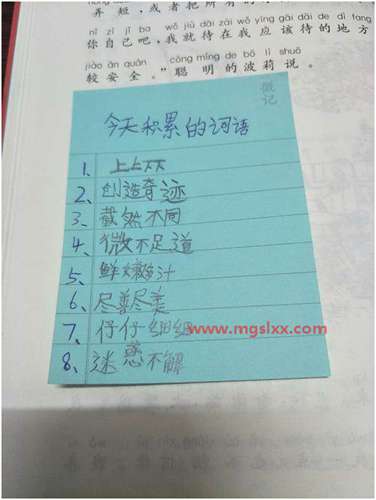 弄短，或者把所有的
nǐ zì jǐ ba wǒ jiù dāi zài wǒ yīng gāi dāi de dì fang
你自己吧，我就待在我应该待的地方
jiào ān quán cōng míng de bō lì shuō
较安全。”聪明的波莉说。
今天积累的词语
1、上上
2、创造奇迹
3、截然不同
4、微不足道
5、鲜嫩多汁
6、尽善尽美
7、仔仔细细
www.mgslxx.com
8、迷惑不解